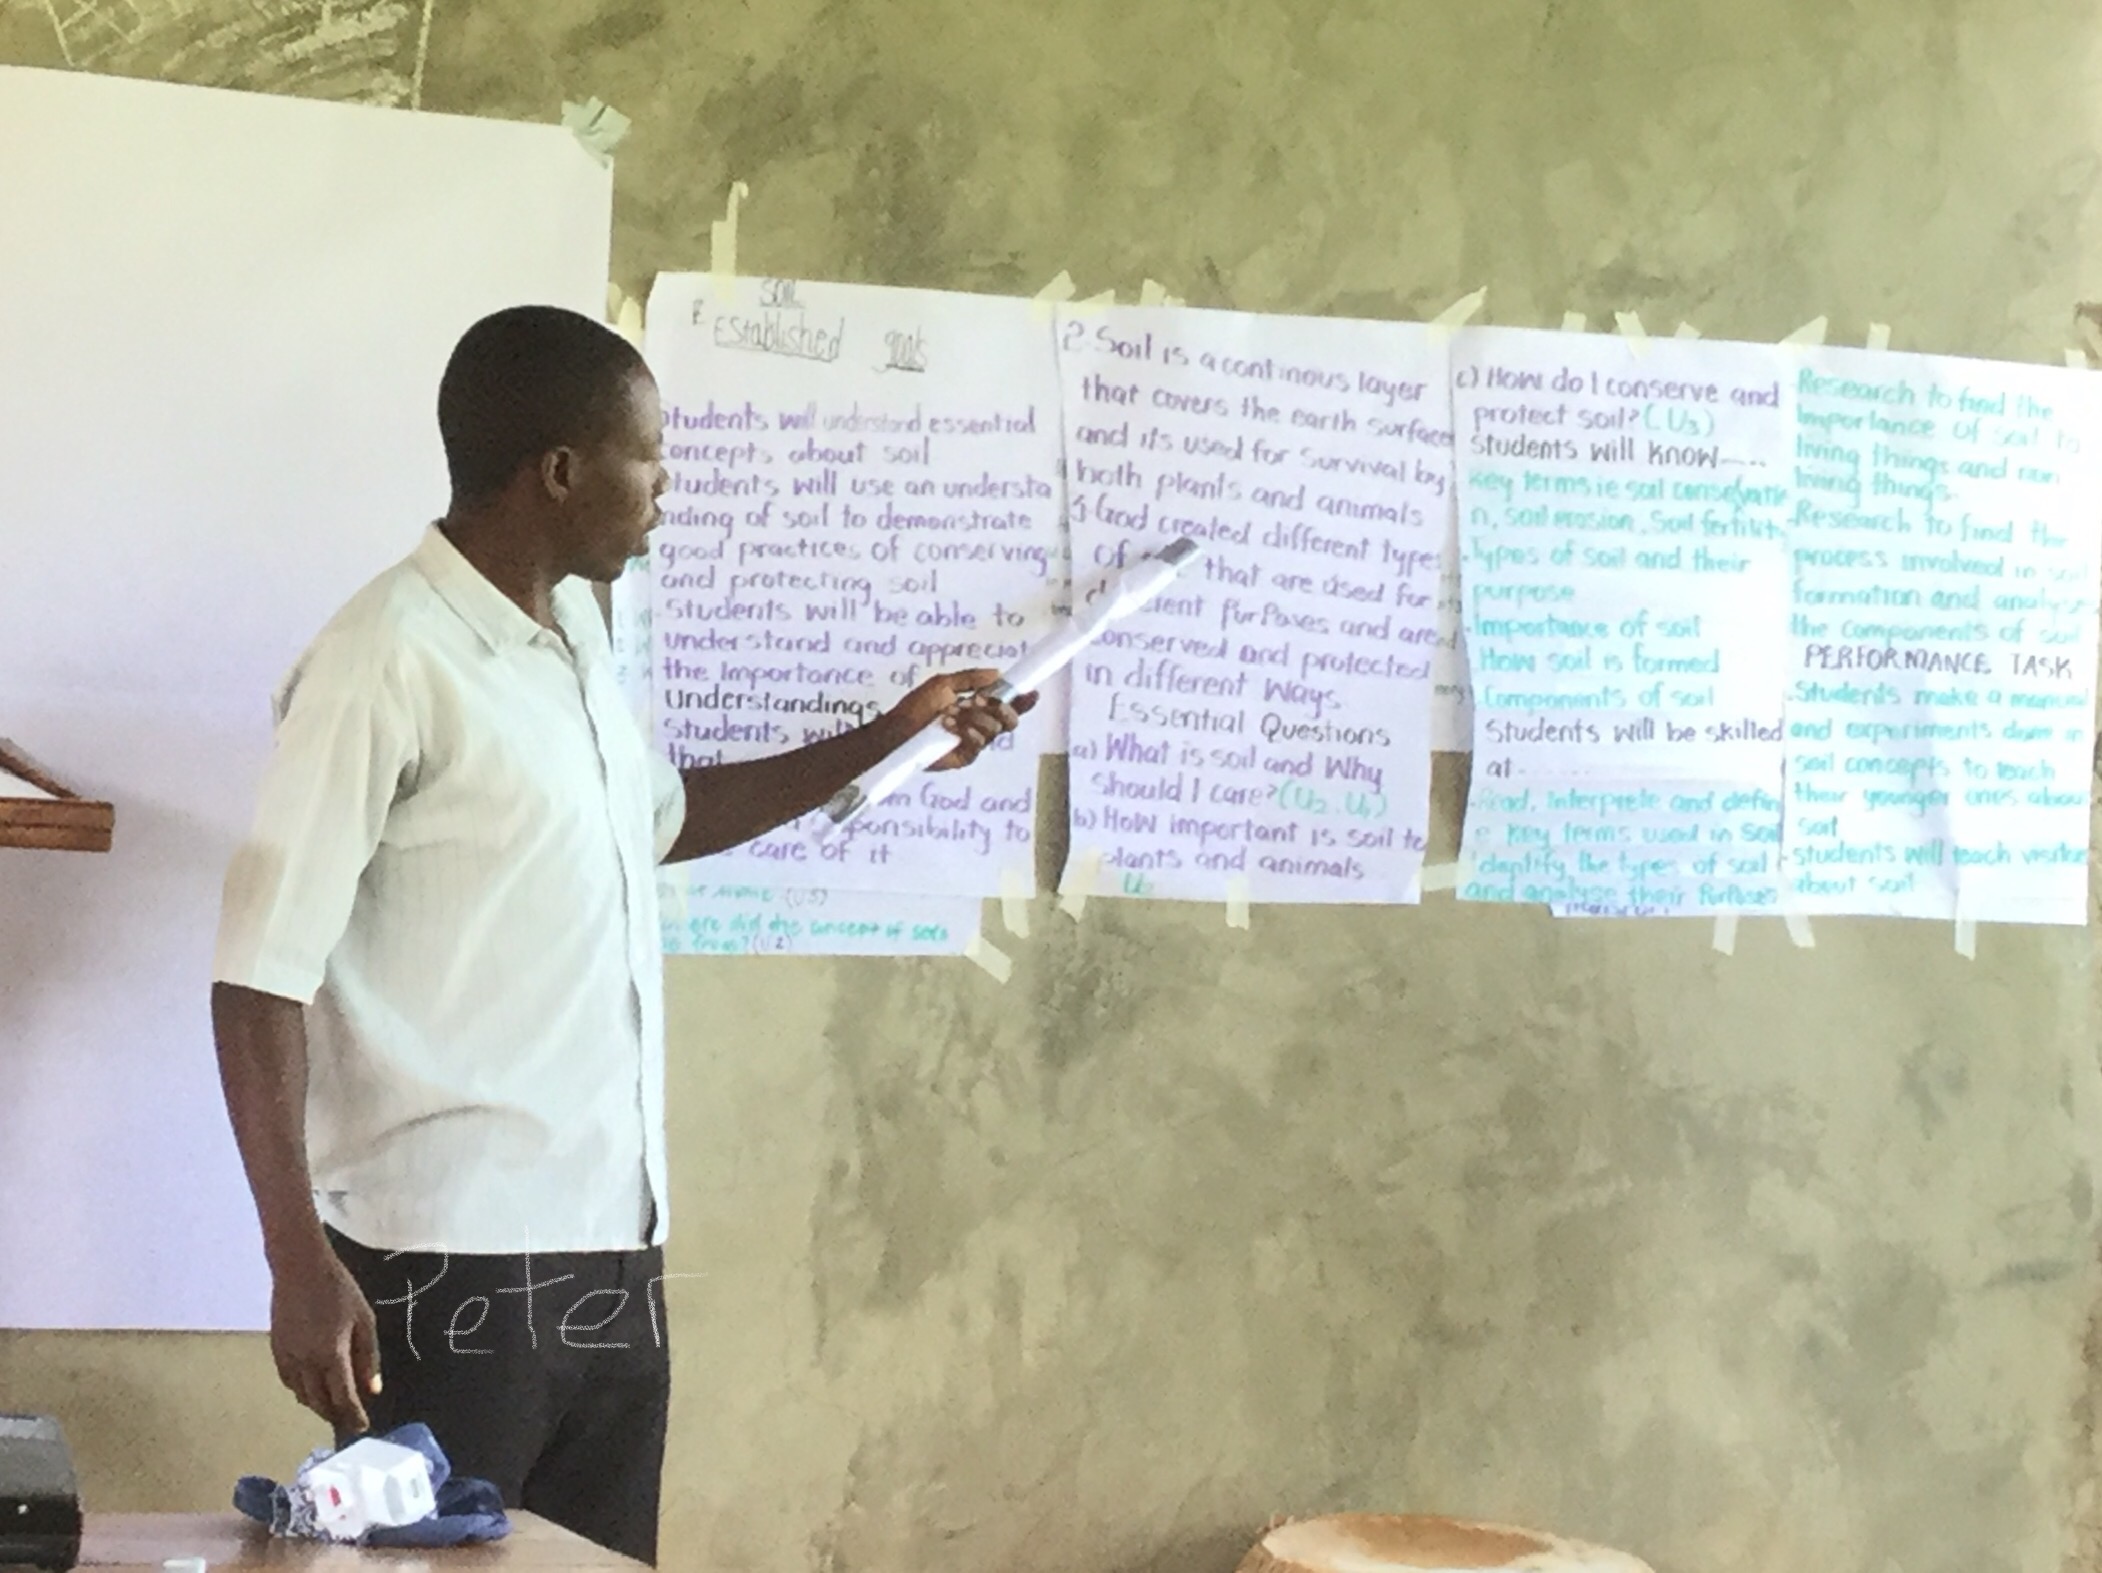 SOIL
Established goals
Students will understand essential
concepts about soil
Students will use an understa
nding of soil to demonstrate
good practices of conserving
and protecting soil
Students will be able to
understand and appreciat
the Importance of
Understandings
Students will
that
God and
ponsibility to
care of it
did the concept of
from? (U2)
2. Soil is a continous layer
that covers the earth surface
and its used for survival by
both plants and animals
God created different type
of that are used for
purposes and are
conserved and protected
in different ways.
Essential Questions
a) What is soil and Why
should I care? (U2, U1)
b) How important is soil to
plants and animals
U
c) How do I conserve and
protect soil? (U3)
Students will know----
Key terms ie soil conservatio
n, soil erosion, Soil fertilit
Types of soil and their
purpose
Importance of soil
How soil is formed
Components of soil
Students will be skilled
at........
Read, interprete and defin
e key terms used in soil
Identify the types of soil
and analyse their purposes
Research to find the
importance of soil to
living things and non
living things.
Research to find the
process involved in soil
formation and analyse
the components of soil
PERFORMANCE TASK
Students make a manual
and experiments done in
soil concepts to teach
their younger ones about
soil
Students will teach visitor
about soil
Peter